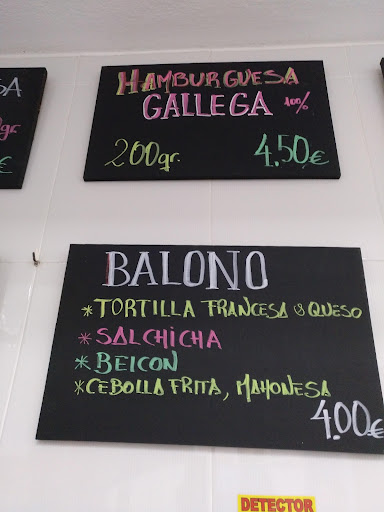 SA
gr.
€
HAMBURGUESA
GALLEGA 100%
200gr. 4.50€
BALONO
*TORTILLA FRANCESA & QUESO
*SALCHICHA
*BEICON
*CEBOLLA FRITA, MAHONESA
4.00€
DETECTOR